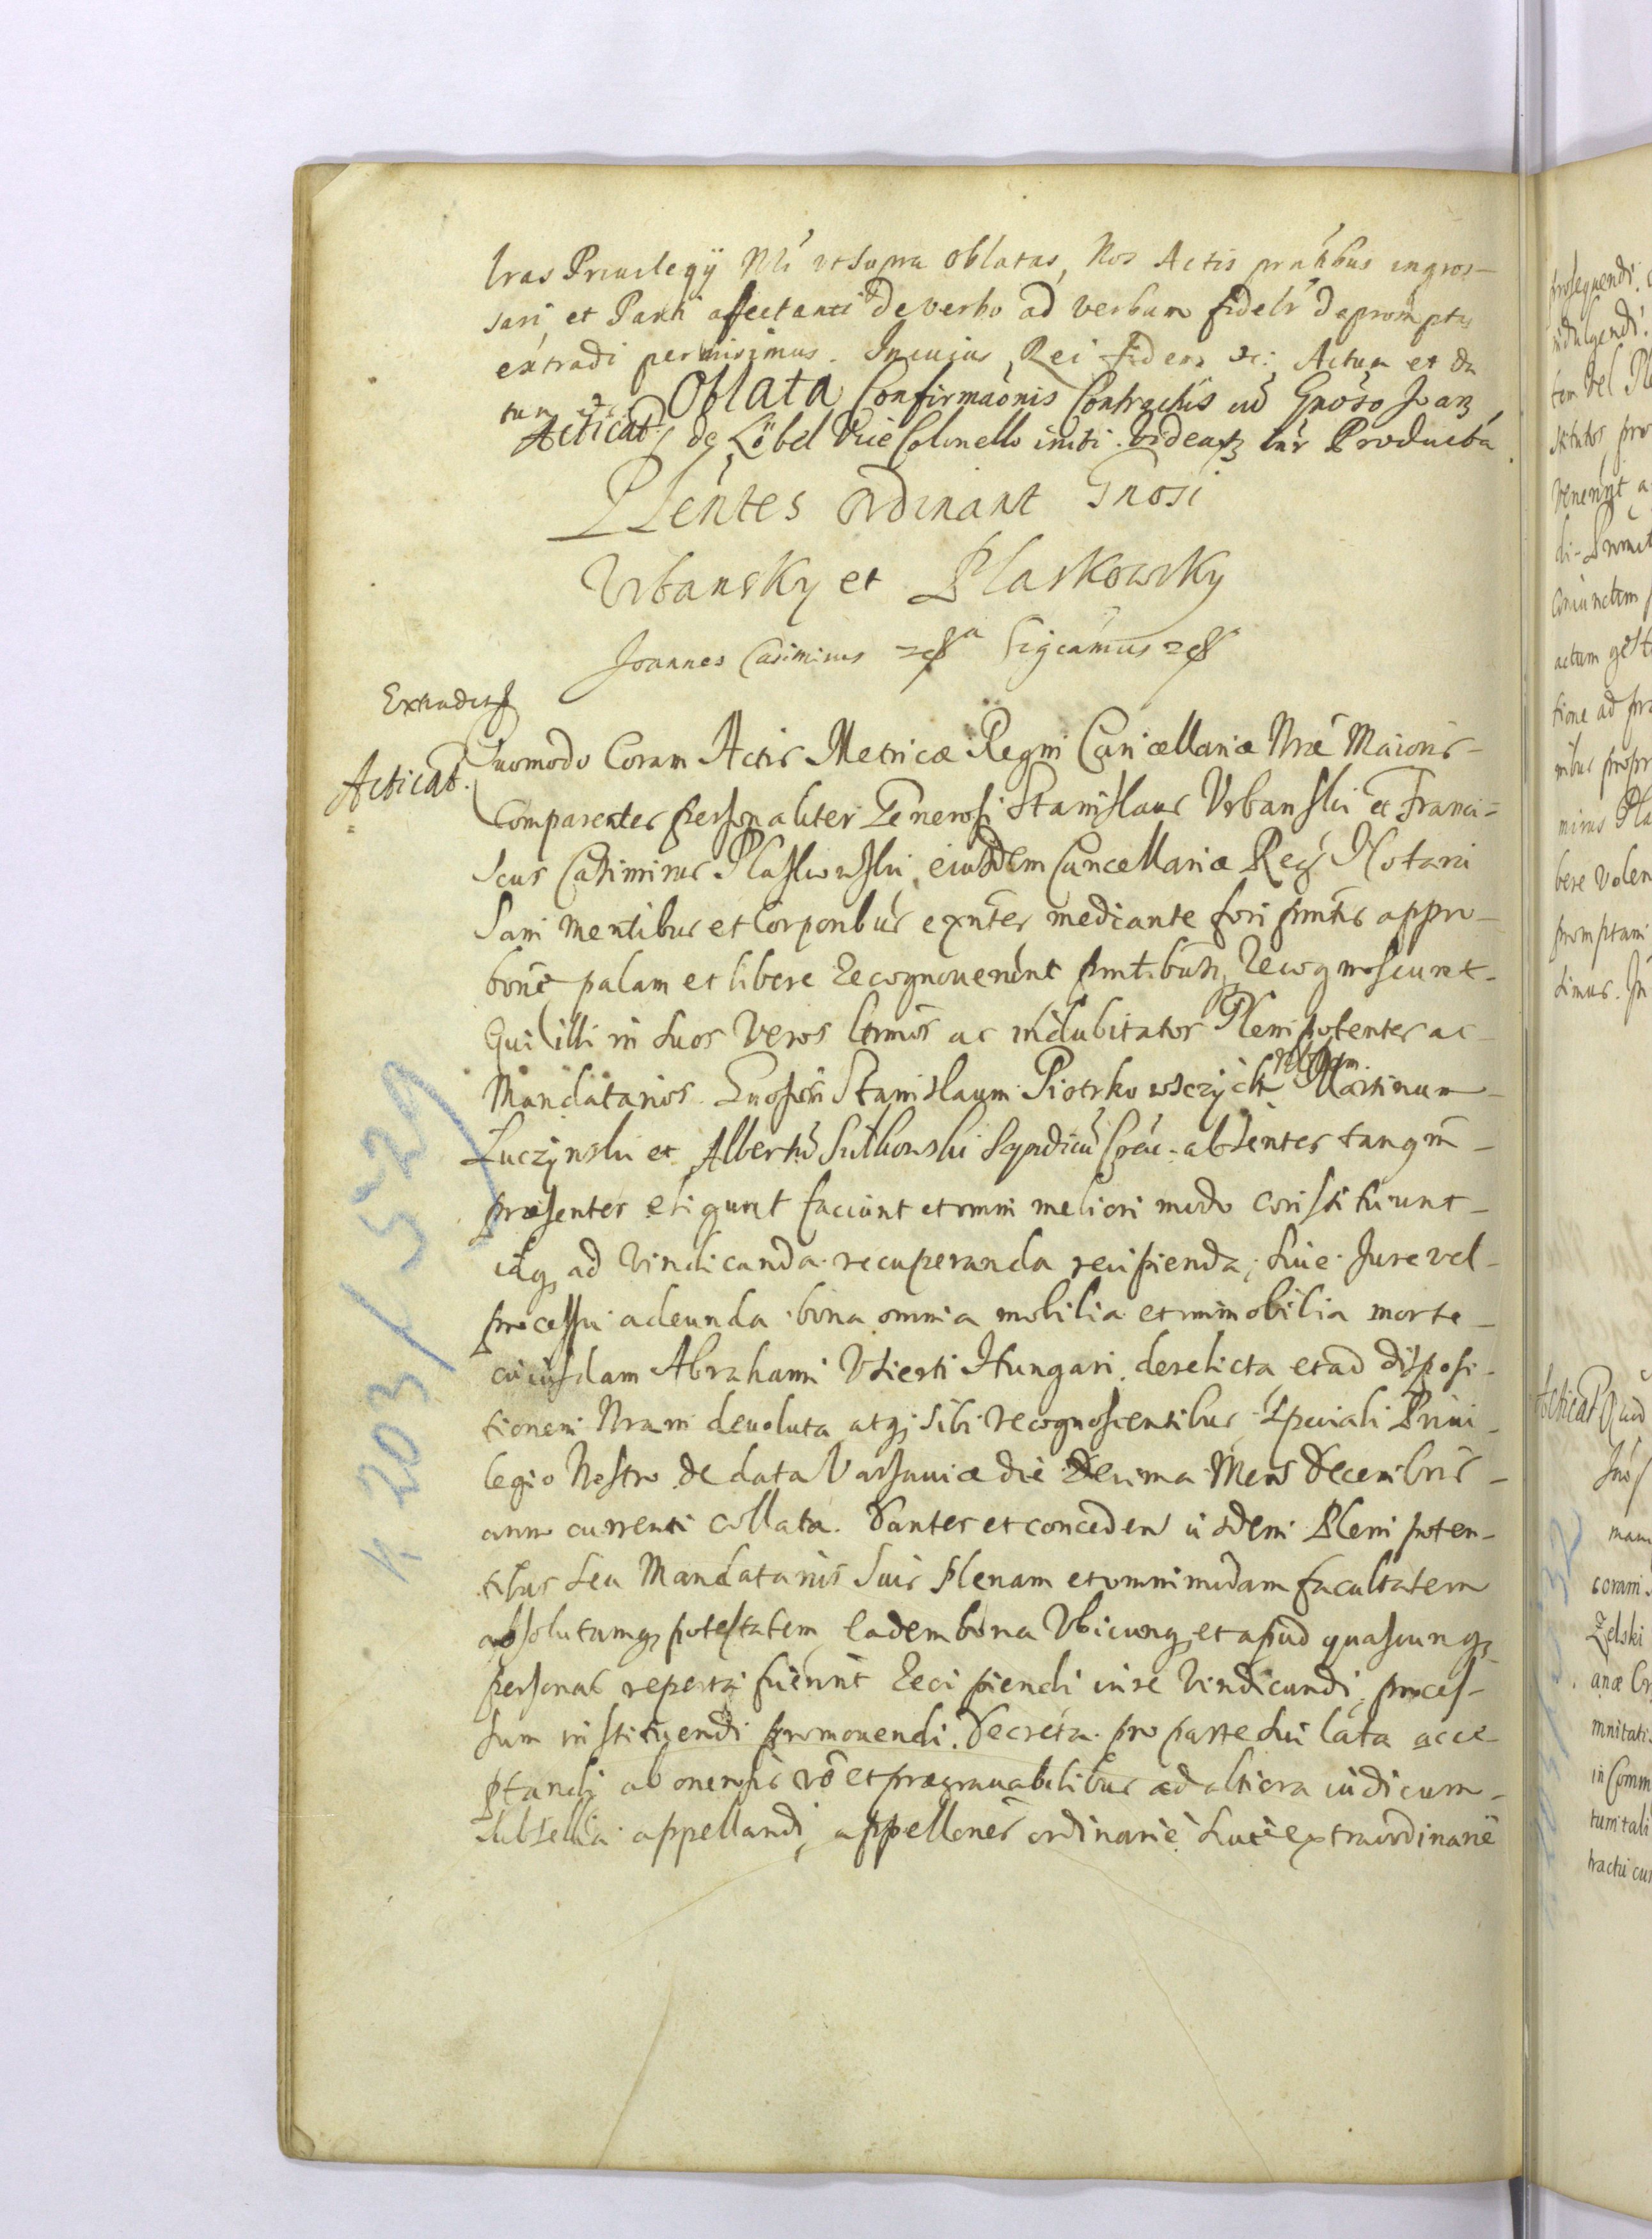 lras Privilegij Nri vtsupra oblatas, Nos Actis prantibus ingros-
sari, et Parti affectanti de verbo ad verbum fidelr depromptas
extradi permisimus. Incuius Rei fidem &c: Actum et da
tum &c.
Oblata Confirmaonis Contractus cu Gnoso Joan
Acticat. de Löbel Vice Colonello initi. Videatr lnr Producta
Plentes ordinant Gnosi
Vrbansky et Plaskowsky
Joannes Casimirus Sigcamus
Extraditr
Acticat.
Quomodo Coram Actis Metricæ Regni Cancellariæ Nræ Maioris-
Comparentes personaliter Generosi Stanislaus Vrbanski et Franci=
scus Casimirus Plaskowski, eiusdem Cancellariæ Reg. Notarii
Sani mentibus et Corporibus exntes mediante fori sui appro-
bone palam et libere recognouerunt pntibusq recognoscunt-
Quia illi in suos Veros ltmos ac indubitatos Plenipotentes ac-
Mandatarios Gnosos Stanislaum Piotrkowczyck Nblem Martinum-
Łuczynski et Albertu Sulkowski Syndicu Crac. absentes tanqm-
præsentes eligunt faciunt et omni meliori modo constituunt-
idq ad vindicanda recuperanda recipienda, siue Jure vel-
processu adeunda bona omnia mobilia et immobilia morte-
cuiusdam Abrahami Vsierti Hungari derelicta et ad disposi-
tionem Nram deuoluta atq sibi recognoscentibus Speciali Priui-
legio Nostro de data Varsauiæ die Decima Mens Decembris-
anno currenti collata. Dantes et conceden iisdem Plenipoten-
tibus seu Mandatariis suis plenam et omnimodam facultatem
absolutamq potestatem, eadem bona Vbicunq et apud quascunq
personas reperta fuerint recipiendi iure vindicandi, proces-
sum instituendi promouendi. Decreta pro parte sui lata acce-
ptandi ab onerosis vo et prægrauabilibus ad altiora iudicum-
Subsellia appellandi, appellones ordinarie siue extraordinarie
K 203/529